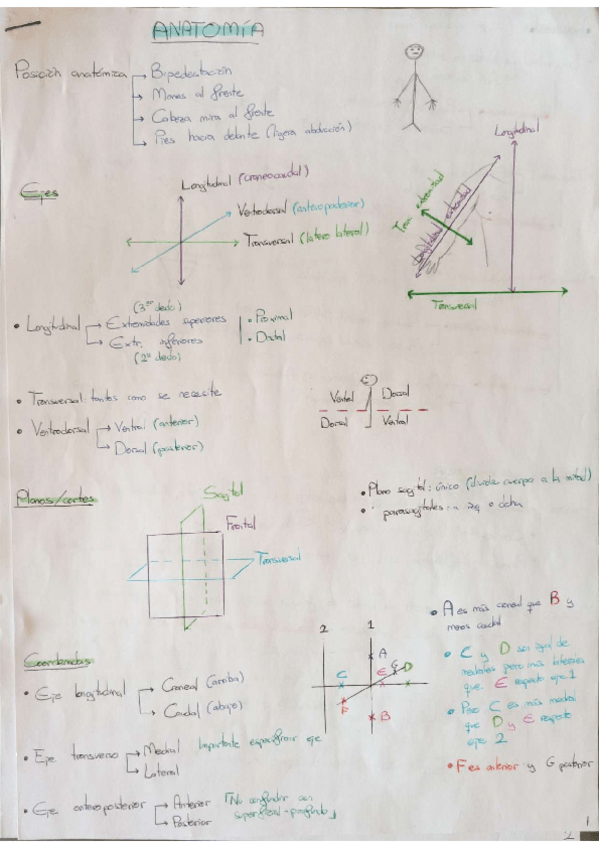 ANATOMÍA
Posición anatómica → Bipedestación
→ Manos al frente
→ Cabeza mira al frente
→ Pies hacia delante (ligera abducción)
Longitudinal
Ejes
Longitudinal (craneocaudal)
Ventrodorsal (anteroposterior)
Transversal (latero lateral)
Tran. extremidad
Longitudinal extremidad
Transversal
(3er dedo)
• Longitudinal → Extremidades superiores
→ Extr. inferiores
(2º dedo)
• Proximal
• Distal
• Transversal: tantos como se necesite
• Ventrodorsal → Ventral (anterior)
→ Dorsal (posterior)
Ventral Dorsal
Dorsal Ventral
Planos/cortes
Sagital
Frontal
Transversal
• Plano sagital: único (divide cuerpo a la mitad)
• " parasagitales: a izq o dcha
Coordenadas
2 1
A
C E G D
F
B
• A es más craneal que B y
menos caudal
• C y D son igual de
mediales pero más laterales
que E respecto eje 1
• Pero C es más medial
que D y E respecto
eje 2
• F es anterior y G posterior
• Eje longitudinal → Craneal (arriba)
→ Caudal (abajo)
• Eje transverso → Medial
→ Lateral
Importante especificar eje
• Eje anteroposterior → Anterior
→ Posterior
「No confundir con
superficial-profundo」
1